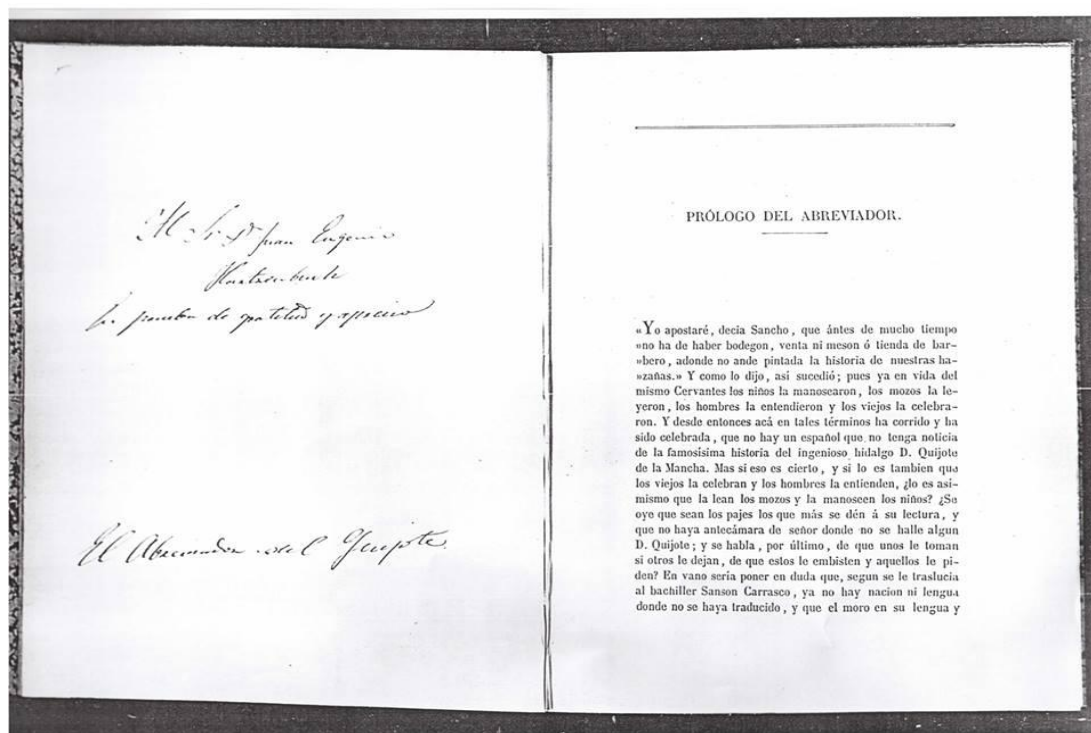 Al Sr. Dn. Juan Eugenio
Hartzenbusch
en prueba de gratitud y aprecio
El Abreviador del Quijote
PRÓLOGO DEL ABREVIADOR.
«Yo apostaré, decia Sancho, que ántes de mucho tiempo
»no ha de haber bodegon, venta ni meson ó tienda de bar-
»bero, adonde no ande pintada la historia de nuestras ha-
»zañas.» Y como lo dijo, asi sucedió; pues ya en vida del
mismo Cervantes los niños la manosearon, los mozos la le-
yeron, los hombres la entendieron y los viejos la celebra-
ron. Y desde entonces acá en tales términos ha corrido y ha
sido celebrada, que no hay un español que no tenga noticia
de la famosísima historia del ingenioso hidalgo D. Quijote
de la Mancha. Mas si eso es cierto, y si lo es tambien que
los viejos la celebran y los hombres la entienden, ¿lo es asi-
mismo que la lean los mozos y la manoseen los niños? ¿Se
oye que sean los pajes los que más se dén á su lectura, y
que no haya antecámara de señor donde no se halle algun
D. Quijote; y se habla, por último, de que unos le toman
si otros le dejan, de que estos le embisten y aquellos le pi-
den? En vano seria poner en duda que, segun se le traslucia
al bachiller Sanson Carrasco, ya no hay nacion ni lengua
donde no se haya traducido, y que el moro en su lengua y